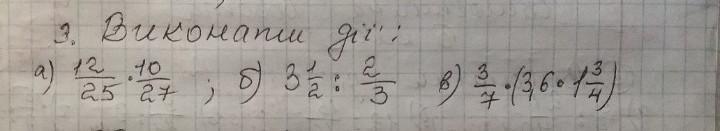 3. Виконати дії:
а) 12/25 · 10/27 ; б) 3 1/2 : 2/3 в) 3/7 · (3,6 · 1 3/4)